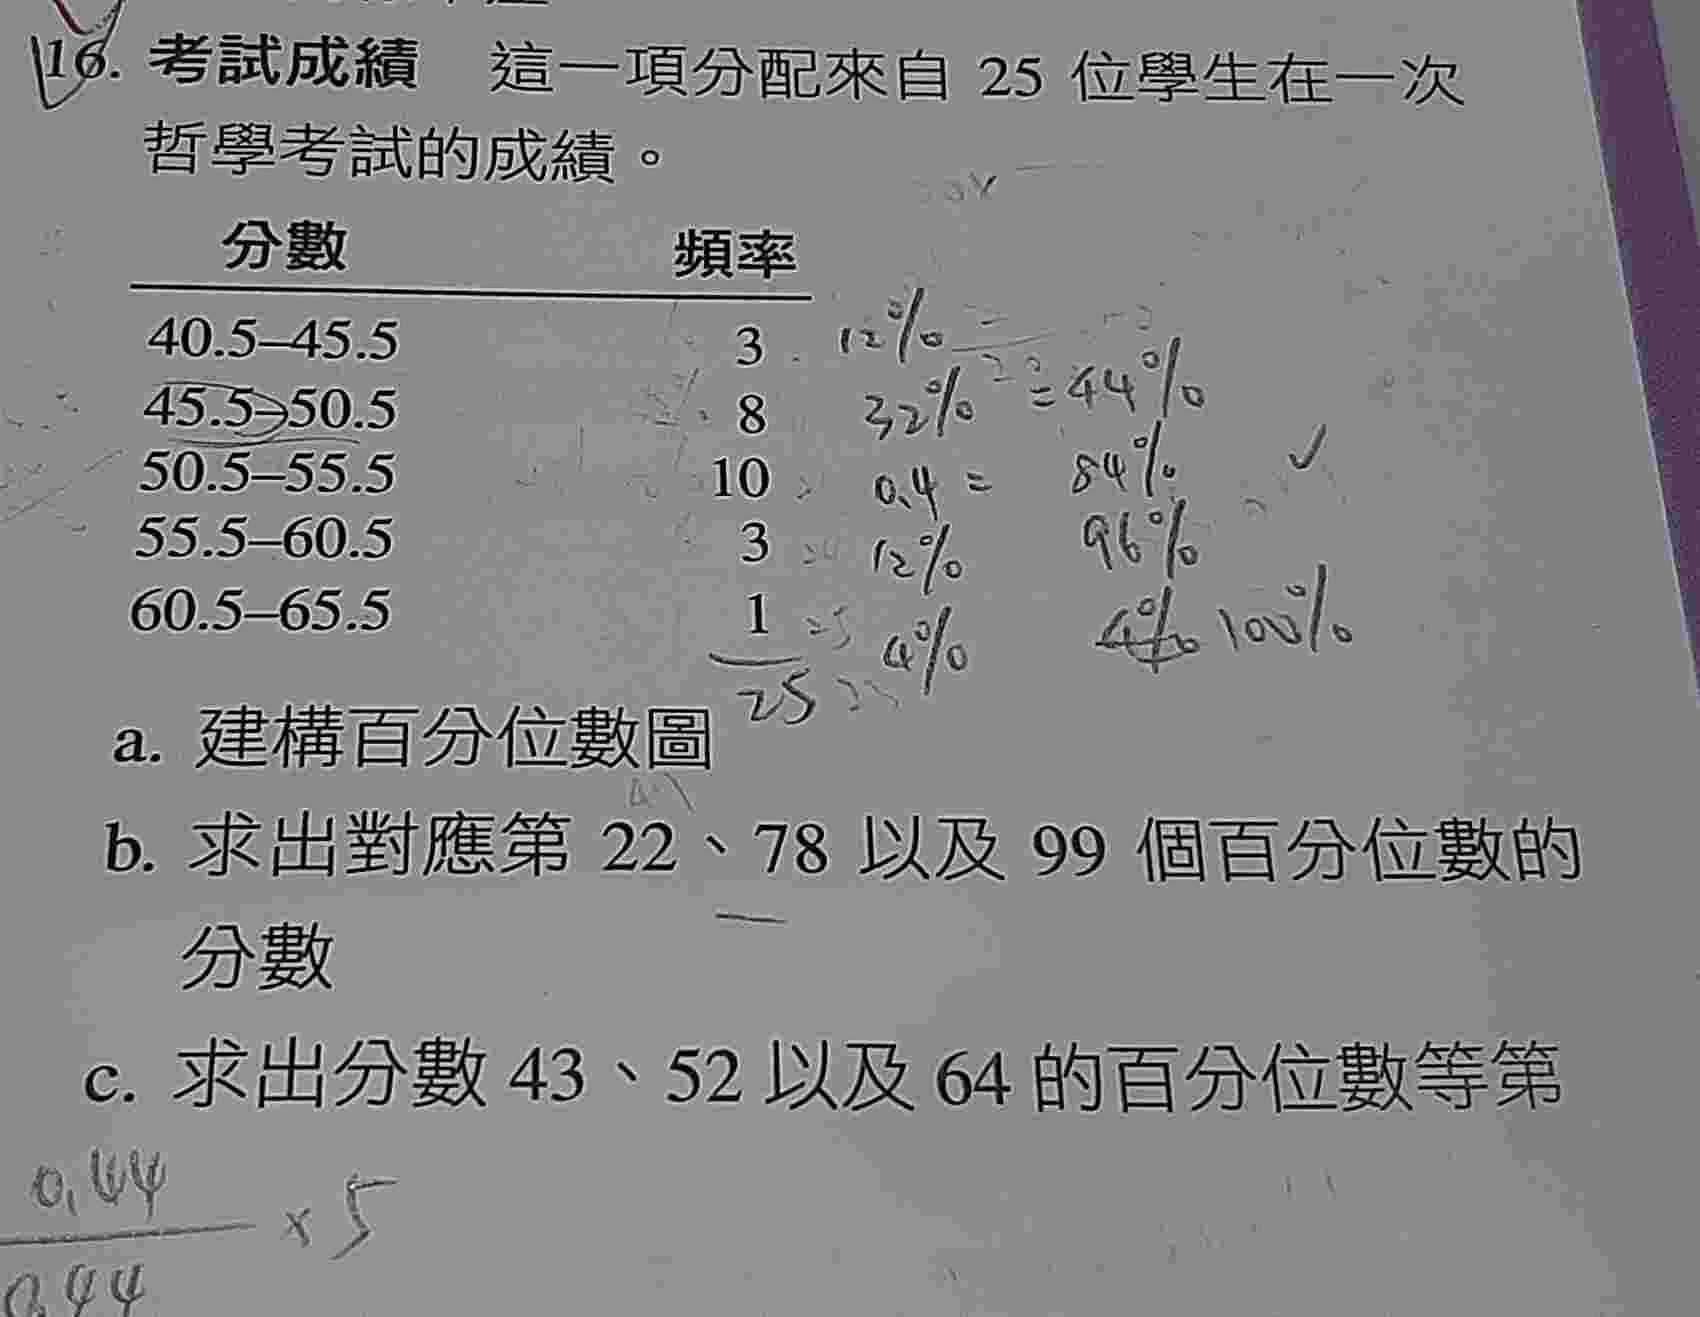 16. 考試成績 這一項分配來自 25 位學生在一次
哲學考試的成績。
分數 頻率
40.5–45.5 3 12%
45.5–50.5 8 32% = 44%
50.5–55.5 10 0.4 = 84% ✓
55.5–60.5 3 12% 96%
60.5–65.5 1 4% 4% 100%
25
a. 建構百分位數圖
b. 求出對應第 22、78 以及 99 個百分位數的
分數
c. 求出分數 43、52 以及 64 的百分位數等第
0.44
× 5
0.44